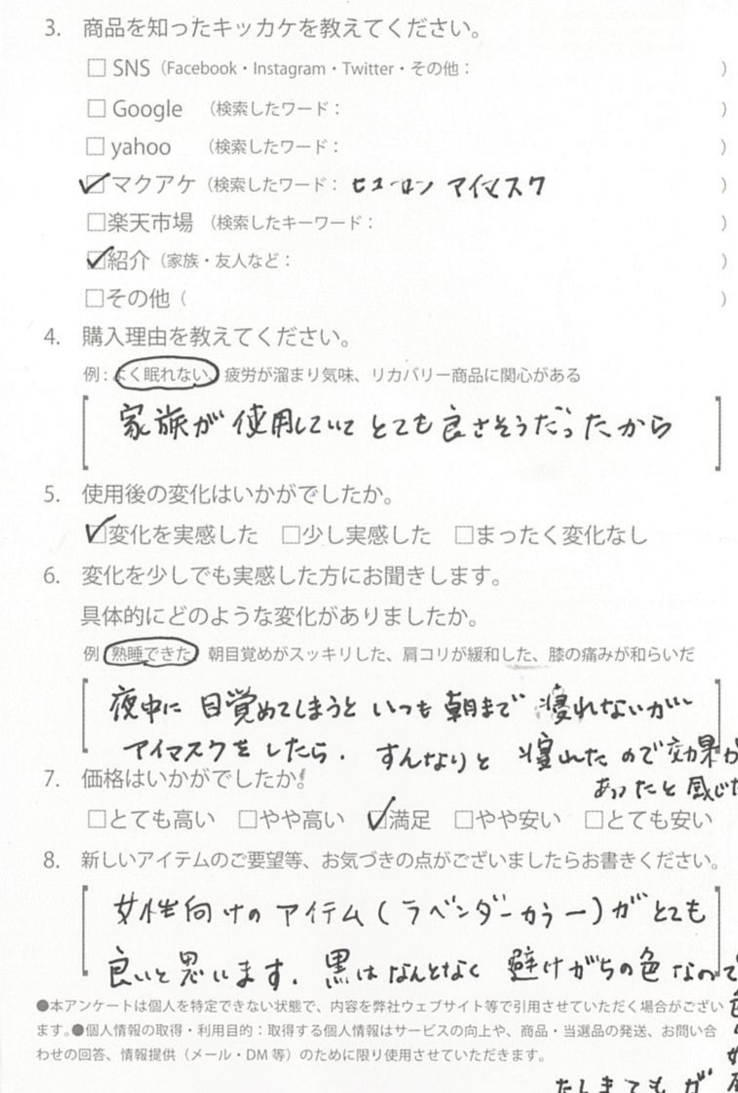 3. 商品を知ったキッカケを教えてください。
□ SNS（Facebook・Instagram・Twitter・その他： ）
□ Google （検索したワード： ）
□ yahoo （検索したワード： ）
☑ マクアケ （検索したワード： ヒューロン アイマスク ）
□ 楽天市場 （検索したキーワード： ）
☑ 紹介 （家族・友人など： ）
□ その他（ ）
4. 購入理由を教えてください。
例：よく眠れない、疲労が溜まり気味、リカバリー商品に関心がある
家族が使用していてとても良さそうだったから
5. 使用後の変化はいかがでしたか。
☑変化を実感した □少し実感した □まったく変化なし
6. 変化を少しでも実感した方にお聞きします。
具体的にどのような変化がありましたか。
例 熟睡できた 朝目覚めがスッキリした、肩コリが緩和した、膝の痛みが和らいだ
夜中に目覚めてしまうといつも朝まで寝れないが
アイマスクをしたら、すんなりと寝れたので効果が
あったと感じた
7. 価格はいかがでしたか。
□とても高い □やや高い ☑満足 □やや安い □とても安い
8. 新しいアイテムのご要望等、お気づきの点がございましたらお書きください。
女性向けのアイテム(ラベンダーカラー)がとても
良いと思います。黒はなんとなく避けがちの色なので
●本アンケートは個人を特定できない状態で、内容を弊社ウェブサイト等で引用させていただく場合がござい
ます。●個人情報の取得・利用目的：取得する個人情報はサービスの向上や、商品・当選品の発送、お問い合
わせの回答、情報提供（メール・DM 等）のために限り使用させていただきます。